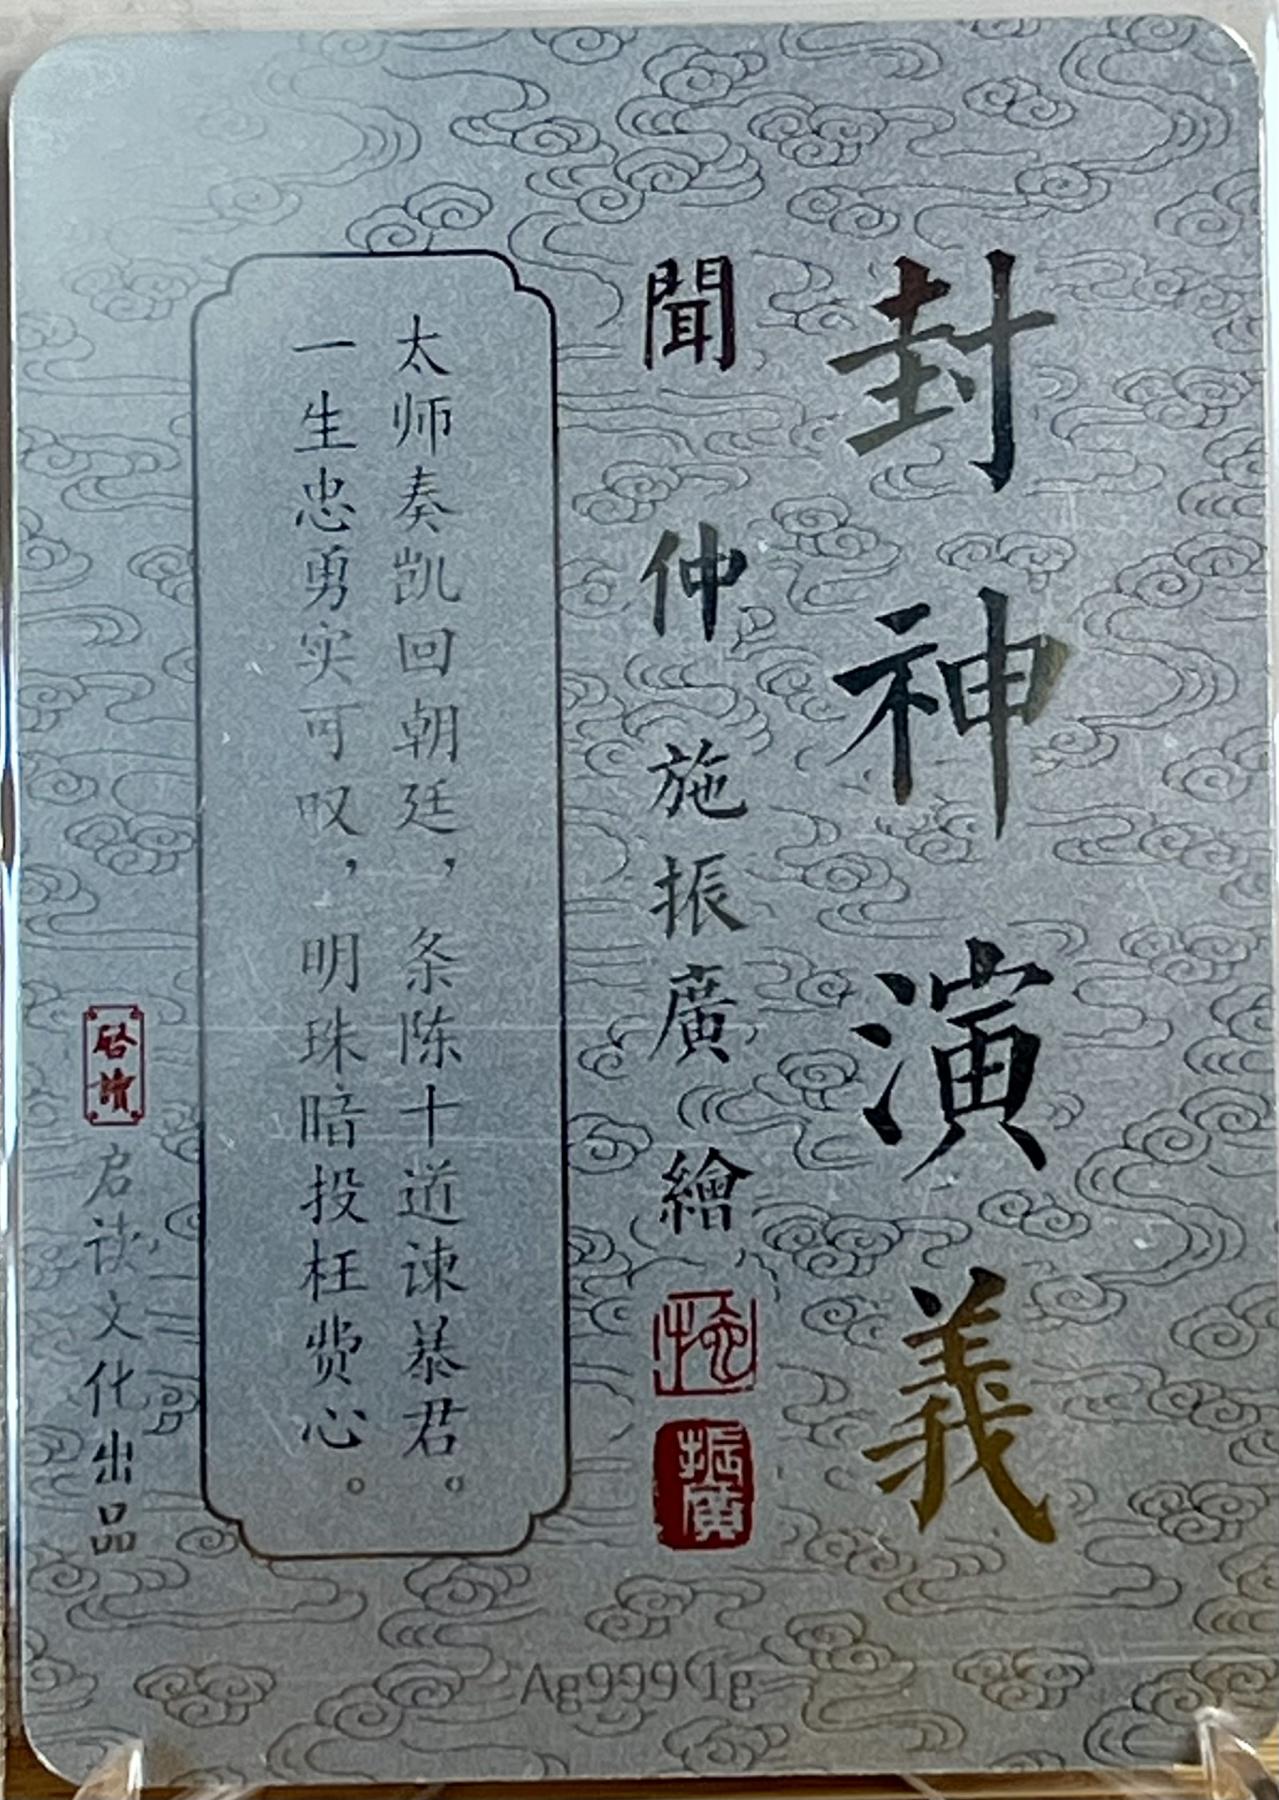 封神演義
聞仲 施振廣 繪
振廣
太师奏凯回朝廷，条陈十道谏暴君。
一生忠勇实可叹，明珠暗投枉费心。
启读文化出品
Ag999 1g